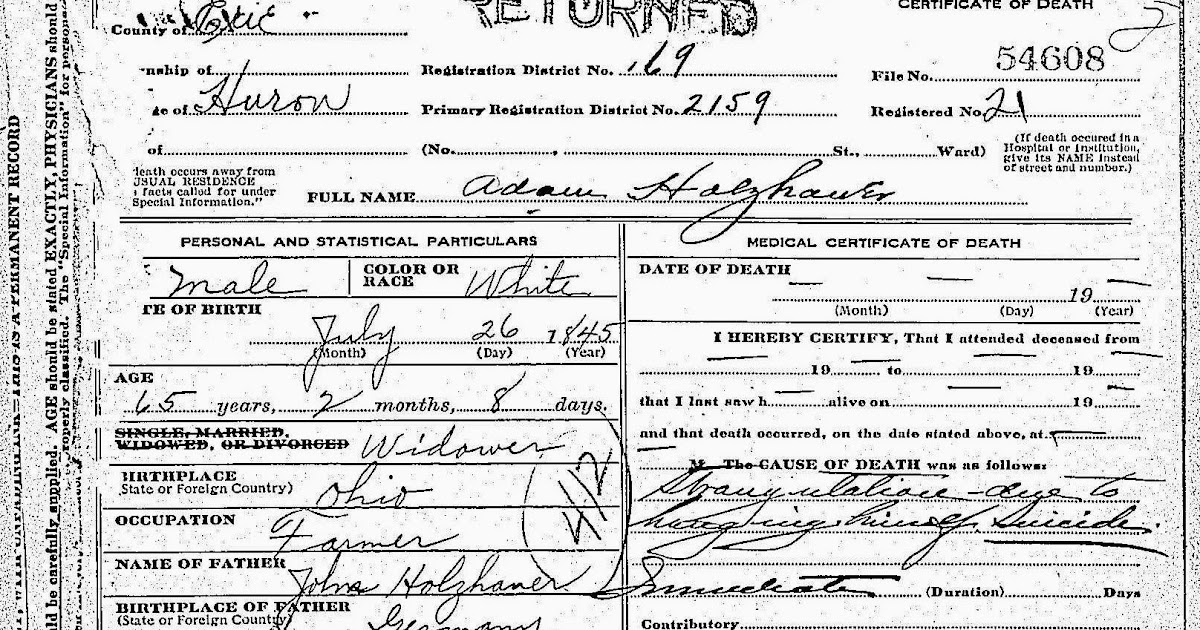 RETURNED
CERTIFICATE OF DEATH
County of Erie
nship of
Registration District No. 169
File No. 54608
ge of Huron
Primary Registration District No. 2159
Registered No. 21
of (No. , St., Ward)
(If death occured in a
Hospital or Institution,
give its NAME instead
of street and number.)
death occurs away from
USUAL RESIDENCE
facts called for under
Special Information."
FULL NAME Adam Holzhauer
PERSONAL AND STATISTICAL PARTICULARS
Male
COLOR OR
RACE White
TE OF BIRTH
July 26 1845
(Month) (Day) (Year)
AGE
65 years, 2 months, 8 days.
SINGLE, MARRIED,
WIDOWED, OR DIVORCED Widower
BIRTHPLACE
State or Foreign Country) Ohio
OCCUPATION
Farmer
NAME OF FATHER
John Holzhauer
BIRTHPLACE OF FATHER
(State or Foreign Country) Germany
MEDICAL CERTIFICATE OF DEATH
DATE OF DEATH
19
(Month) (Day) (Year)
I HEREBY CERTIFY, That I attended deceased from
19 to 19
that I last saw h alive on 19
and that death occurred, on the date stated above, at
M. The CAUSE OF DEATH was as follows:
Strangulation - due to
hanging himself. Suicide.
Immediate (Duration) Days
Contributory
PERMANENT RECORD
ld be carefully supplied. AGE should be stated EXACTLY, PHYSICIANS should
properly classified. The "Special Information" for persons